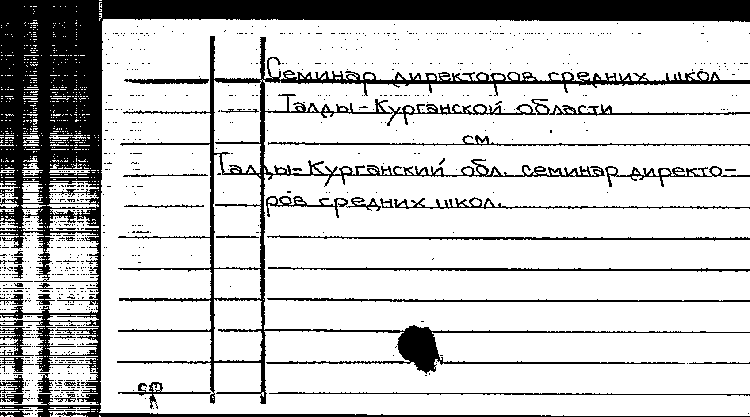 Семинар директоров средних школ
Талды-Курганской области
см.
Талды-Курганский обл. семинар директо-
ров средних школ.